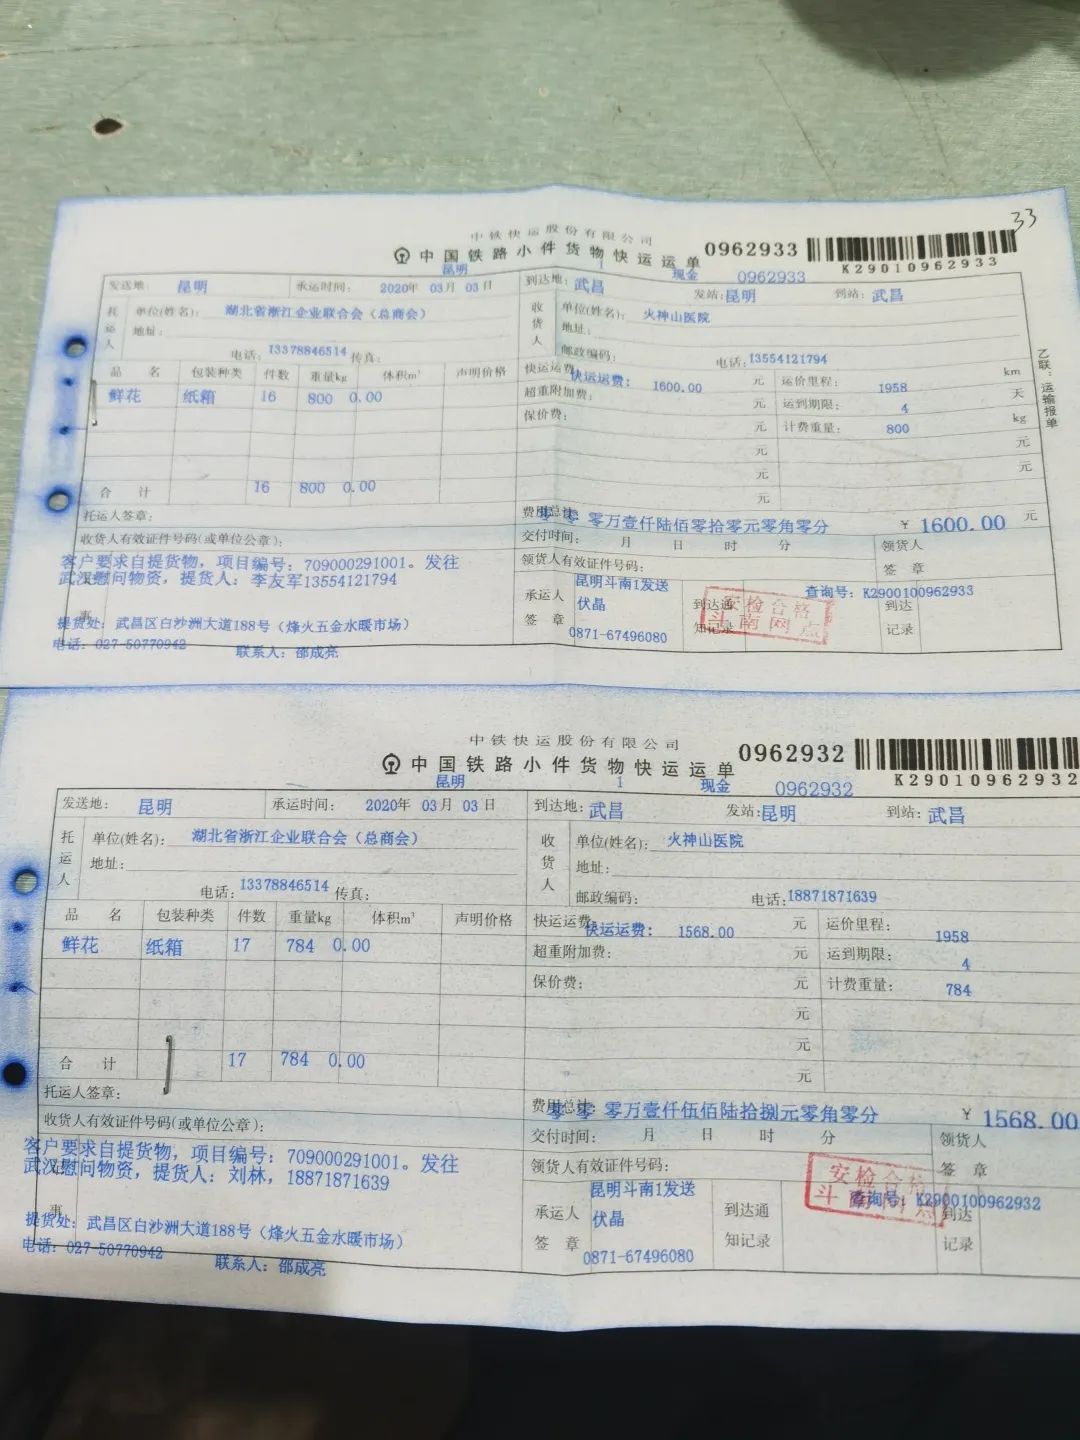 33
中铁快运股份有限公司
中国铁路小件货物快运运单 0962933
K29010962933
昆明 1 现金 0962933
发送地: 昆明 承运时间: 2020年 03月 03日 到达地: 武昌 发站:昆明 到站: 武昌
托运人 单位(姓名): 湖北省浙江企业联合会(总商会) 收货人 单位(姓名): 火神山医院
地址: 地址:
电话: 13378846514 传真: 邮政编码: 电话: 13554121794
品名 包装种类 件数 重量kg 体积m³ 声明价格 快运运费: 快运运费: 1600.00 元 运价里程: 1958 km
鲜花 纸箱 16 800 0.00 超重附加费: 元 运到期限: 4 天
保价费: 元 计费重量: 800 kg
元 元
元 元
元
合计 16 800 0.00
乙联:运输报单
托运人签章: 费用总计: 零 零 零万壹仟陆佰零拾零元零角零分 ¥ 1600.00 元
收货人有效证件号码(或单位公章): 交付时间: 月 日 时 分 领货人签章
客户要求自提货物,项目编号:709000291001。发往 领货人有效证件号码:
武汉慰问物资,提货人:李友军13554121794
事
承运人签章 昆明斗南1发送 到达通知记录 查询号: K2900100962933
伏晶 到达记录
0871-67496080
安检合格
斗南网点
提货处: 武昌区白沙洲大道188号(烽火五金水暖市场)
电话: 027-50770942 联系人: 邵成亮
中铁快运股份有限公司
中国铁路小件货物快运运单 0962932
K29010962932
昆明 1 现金 0962932
发送地: 昆明 承运时间: 2020年 03月 03日 到达地: 武昌 发站:昆明 到站: 武昌
托运人 单位(姓名): 湖北省浙江企业联合会(总商会) 收货人 单位(姓名): 火神山医院
地址: 地址:
电话: 13378846514 传真: 邮政编码: 电话:18871871639
品名 包装种类 件数 重量kg 体积m³ 声明价格 快运运费 快运运费: 1568.00 元 运价里程: 1958
鲜花 纸箱 17 784 0.00 超重附加费: 元 运到期限: 4
保价费: 元 计费重量: 784
元
元
元
合计 17 784 0.00
托运人签章: 费用总计: 零 零 零万壹仟伍佰陆拾捌元零角零分 ¥ 1568.00
收货人有效证件号码(或单位公章): 交付时间: 月 日 时 分 领货人签章
客户要求自提货物,项目编号:709000291001。发往 领货人有效证件号码:
武汉慰问物资,提货人:刘林,18871871639
事
承运人签章 昆明斗南1发送 到达通知记录 查询号: K2900100962932
伏晶 到达记录
0871-67496080
安检合格
斗南网点
提货处: 武昌区白沙洲大道188号(烽火五金水暖市场)
电话: 027-50770942 联系人: 邵成亮